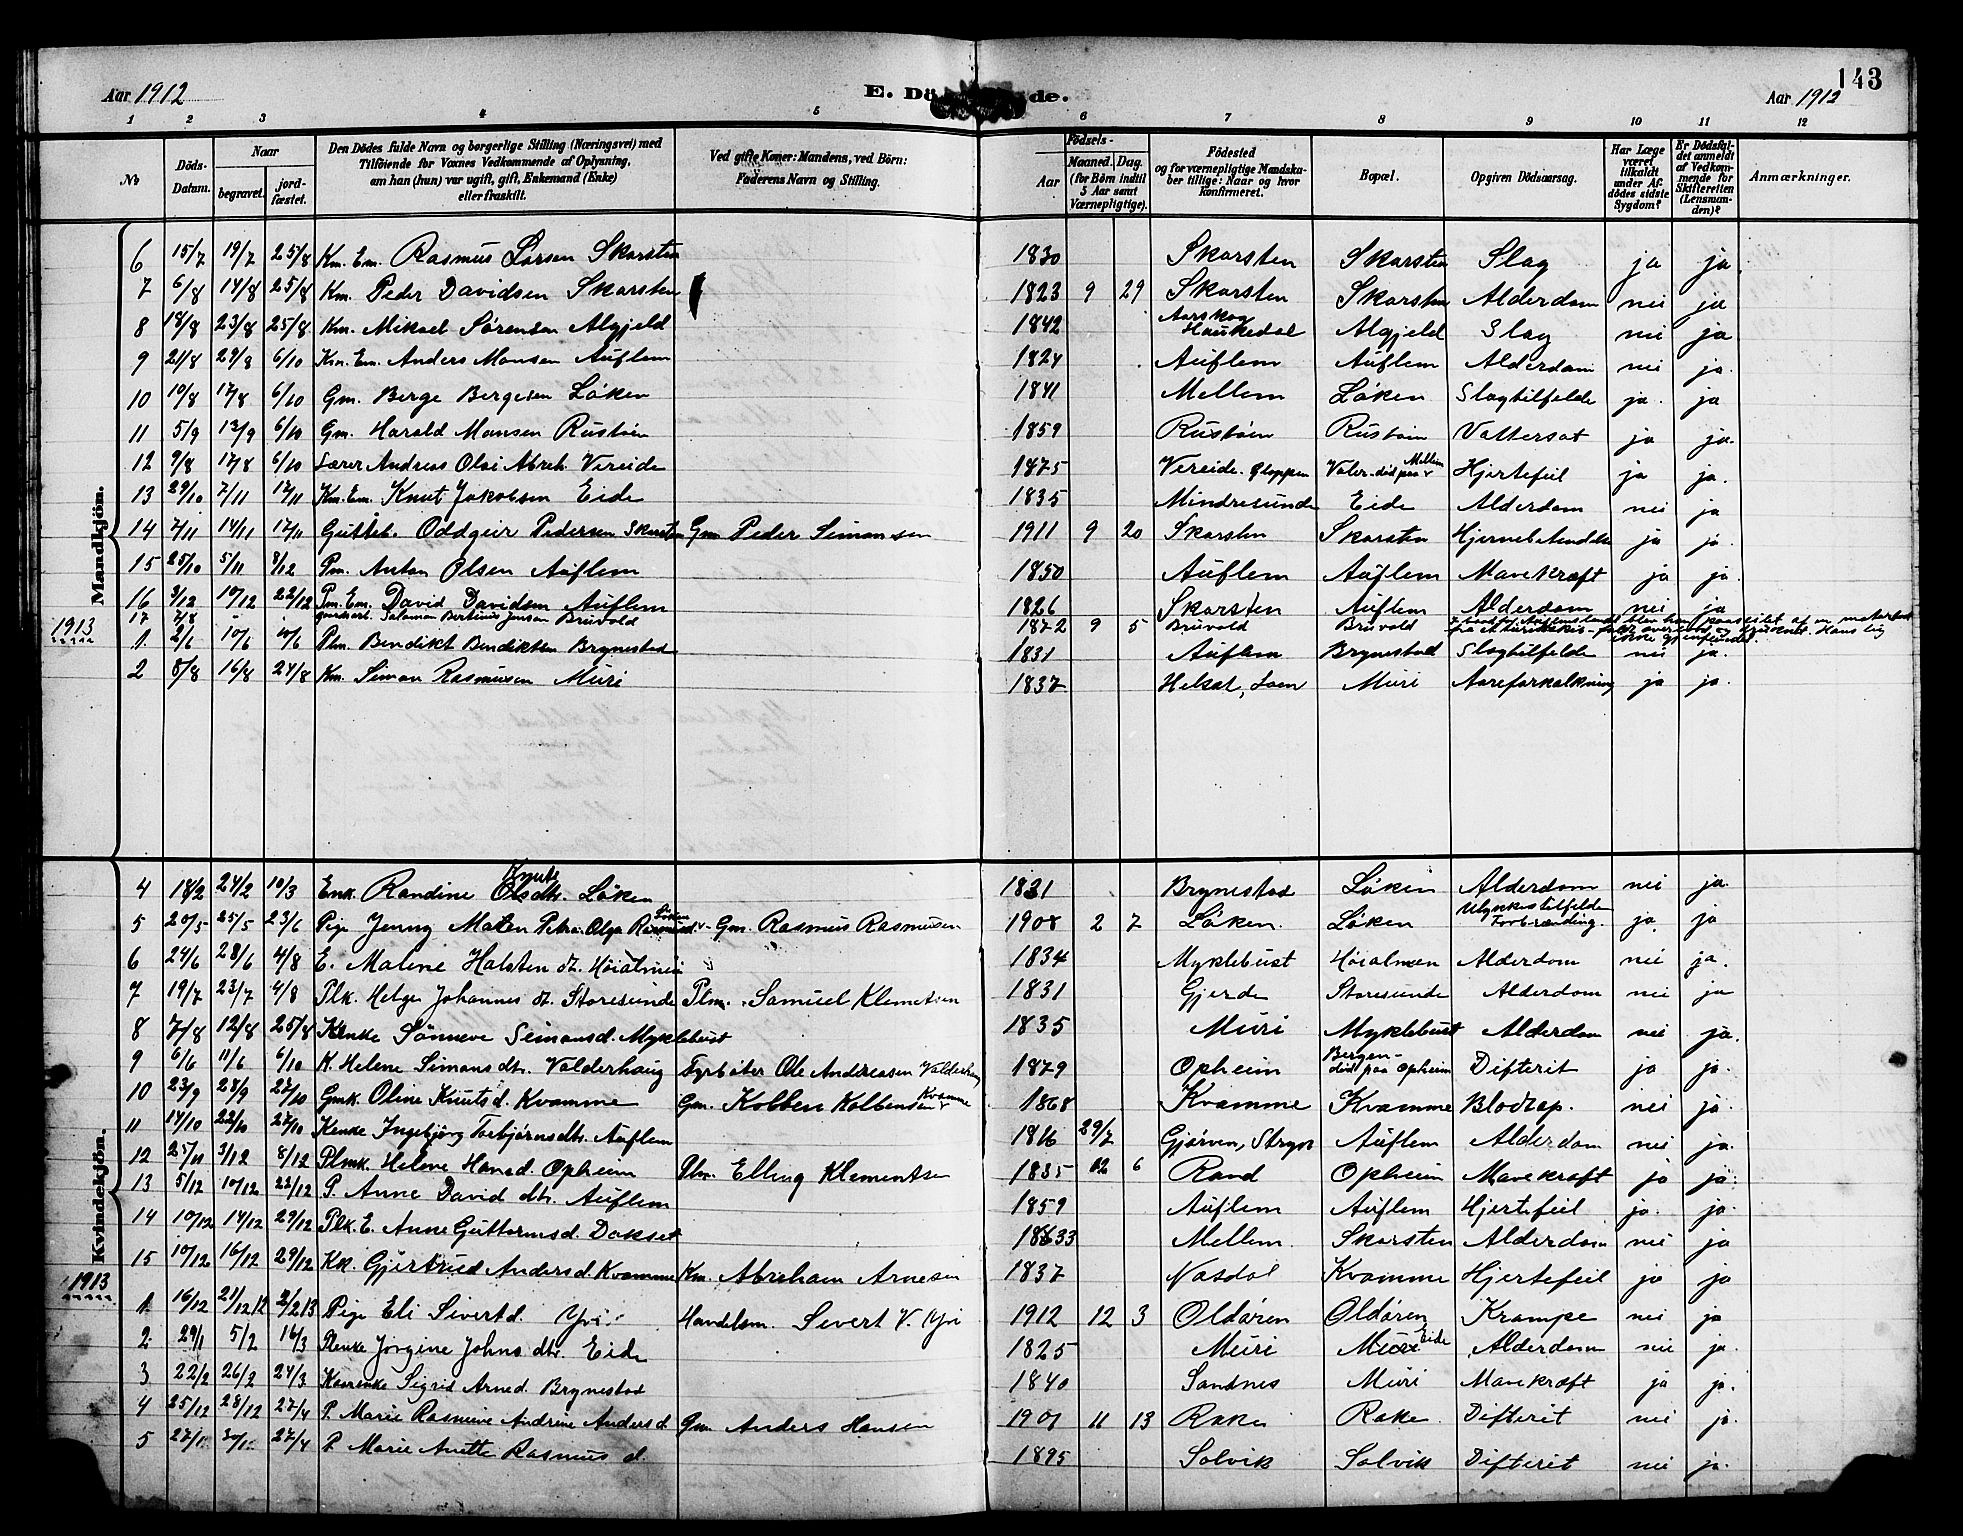 Aar 1912
E. Dö de.
Aar 1912
143
1 2 3 4 5 6 7 8 9 10 11 12
№
Döds-Datum.
Naar
begravet.
jord-fæstet.
Den Dödes fulde Navn og borgerlige Stilling (Næringsvei) med
Tilföiende for Voxnes Vedkommende af Oplysning,
om han (hun) var ugift, gift, Enkemand (Enke)
eller fraskilt.
Ved gifte Koner: Mandens, ved Börn:
Faderens Navn og Stilling.
Födsels-
Aar
Maaned. Dag.
(for Börn indtil
5 Aar samt
Værnepligtige).
Födested
og for værnepligtige Mandska-
ber tillige: Naar og hvor
konfirmeret.
Bopæl.
Opgiven Dödsaarsag.
Har Læge
været
tilkaldt
under Af-
dödes sidste
Sygdom?
Er Dödsfal-
det anmeldt
af Vedkom-
mende for
Skifteretten
(Lensman-
den)?
Anmærkninger.
Mandkjön.
6 15/7 19/7 25/8 Km. Em. Rasmus Larsen Skarsten 1830 Skarsten Skarsten Slag ja ja.
7 6/8 14/8 25/8 Km. Peder Davidsen Skarsten 1823 9 29 Skarsten Skarsten Alderdom nei ja
8 18/8 23/8 25/8 Km. Mikael Sørensen Algjeld 1842 Aarskog Haukedal Algjeld Slag nei ja
9 21/8 29/8 6/10 Km. Em. Anders Monsen Auflem 1824 Auflem Auflem Alderdom nei ja.
10 10/8 17/8 6/10 Gm. Berge Bergesen Løken 1841 Mellem Løken Slagtilfelde ja. ja
11 5/9 13/9 6/10 Gm. Harald Monsen Rustøen 1859 Rustøen Rustøen Vattersot ja ja.
12 9/8 17/8 6/10 Lærer Andreas Olai Abrah. Vereide 1875 Vereide. Gloppen Valer. død paa Mellem Hjertefeil ja ja.
13 29/10 7/11 17/11 Km. Em. Knut Jakobsen Eide 1835 Mindresunde Eide Alderdom nei ja
14 7/11 14/11 17/11 Gutteb. Oddgeir Pedersen Skarsten Gm Peder Simonsen 1911 9 20 Skarsten Skarsten Hjernebetendelse ja ja.
15 25/10 5/11 8/12 Pm. Anton Olsen Auflem 1850 Auflem Auflem Mavekræft ja ja.
16 3/12 10/12 22/12 Pm. Em. David Davidsen Auflem 1826 Skarsten Auflem Alderdom nei ja
17 7/8 " " Salomon Bertinus Jensen Bruvold 1872 9 5 Bruvold Bruvold blev han paaseilet af en motorbaat
1913
1. 2/6 10/6 10/6 Plm. Bendikt Bendikten Brynestad 1831 Auflem Brynestad Slagtilfelde nei ja.
2 8/8 16/8 24/8 Km. Simon Rasmusen Muri 1837 Helset, Loen Muri Aareforkalkning ja ja.
Kvindekjön.
4 18/2 24/2 10/3 Enk. Randine Knuts Olsdtr. Løken 1831 Brynestad Løken Alderdom nei ja.
5 20/5 25/5 23/6 Pige Jenny Maten Petra Olga Rasmusd. Løken Gm. Rasmus Rasmusen 1908 2 7 Løken. Løken Ulykkestilfelde Forbrænding. ja. ja
6 24/6 28/6 4/8 E. Malene Halsten dt. Høialmen 1834 Myklebust Høialmen Alderdom nei ja.
7 19/7 23/7 4/8 Plk. Helge Johannes dt. Storesunde Plm. Samuel Klemetsen 1831 Gjerde Storesunde Alderdom nei ja
8 7/8 12/8 25/8 Kenke Sønneve Simonsd. Myklebust 1835 Muri Myklebust Alderdom nei ja.
9 6/6 11/6 6/10 K. Helene Simonsdtr. Valderhaug Fyrbøter Ole Andreasen Valderhaug 1879 Opheim Bergen- død paa Opheim Difterit ja ja.
10 23/9 28/9 27/10 Gmk. Oline Knutsd. Kvamme Gm. Kolben Kolbensen Kvamme 1868 Kvamme Kvamme Blodtap. nei ja.
11 14/10 22/10 27/10 Kenke Ingebjørg Torbjørnsdtr. Auflem 1816 29/7 Gjørven, Stryn Auflem Alderdom nei ja.
12 25/11 3/12 8/12 Plmk. Helene Hansd Opheim Plm. Elling Klementsen 1835 12 6 Rand Opheim Mavekræft ja ja.
13 5/12 10/12 22/12 P. Anne David dtr. Auflem 1859 Auflem Auflem Hjertefeil ja. ja.
14 10/12 14/12 29/12 Plk. E. Anne Guttormsd. Dokset 1833 Mellem. Skarsten Alderdom nei ja
15 10/12 16/12 29/12 Kk. Gjertrud Andersd. Kvamme Km. Abraham Arnesen 1837 Nosdal Kvamme Hjertefeil ja ja
1913
1. 16/12 21/12 12 2/2 13 Pige Eli Sivertd. Yri Handelsm. Sivert V. Yri 1912 12 3 Oldøren Oldøren Krampe nei ja
2. 29/1 5/2 16/3 Plenke Jørgine Johns dtr. Eide 1825 Muri Muri Eide Alderdom nei ja.
3 22/2 26/2 24/3 Kaarenke Sigrid Arned. Brynestad 1840 Sandnes Muri Mavekræft ja ja.
4 25/12 28/12 27/4 P. Marie Rasmine Andrine Andersd Gm. Anders Hansen 1901 11 13 Rake Rake. Difterit nei ja.
5 27/1 27/4 P. Marie Anette Rasmus d. 1895 Solvik Solvik Difterit nei ja.